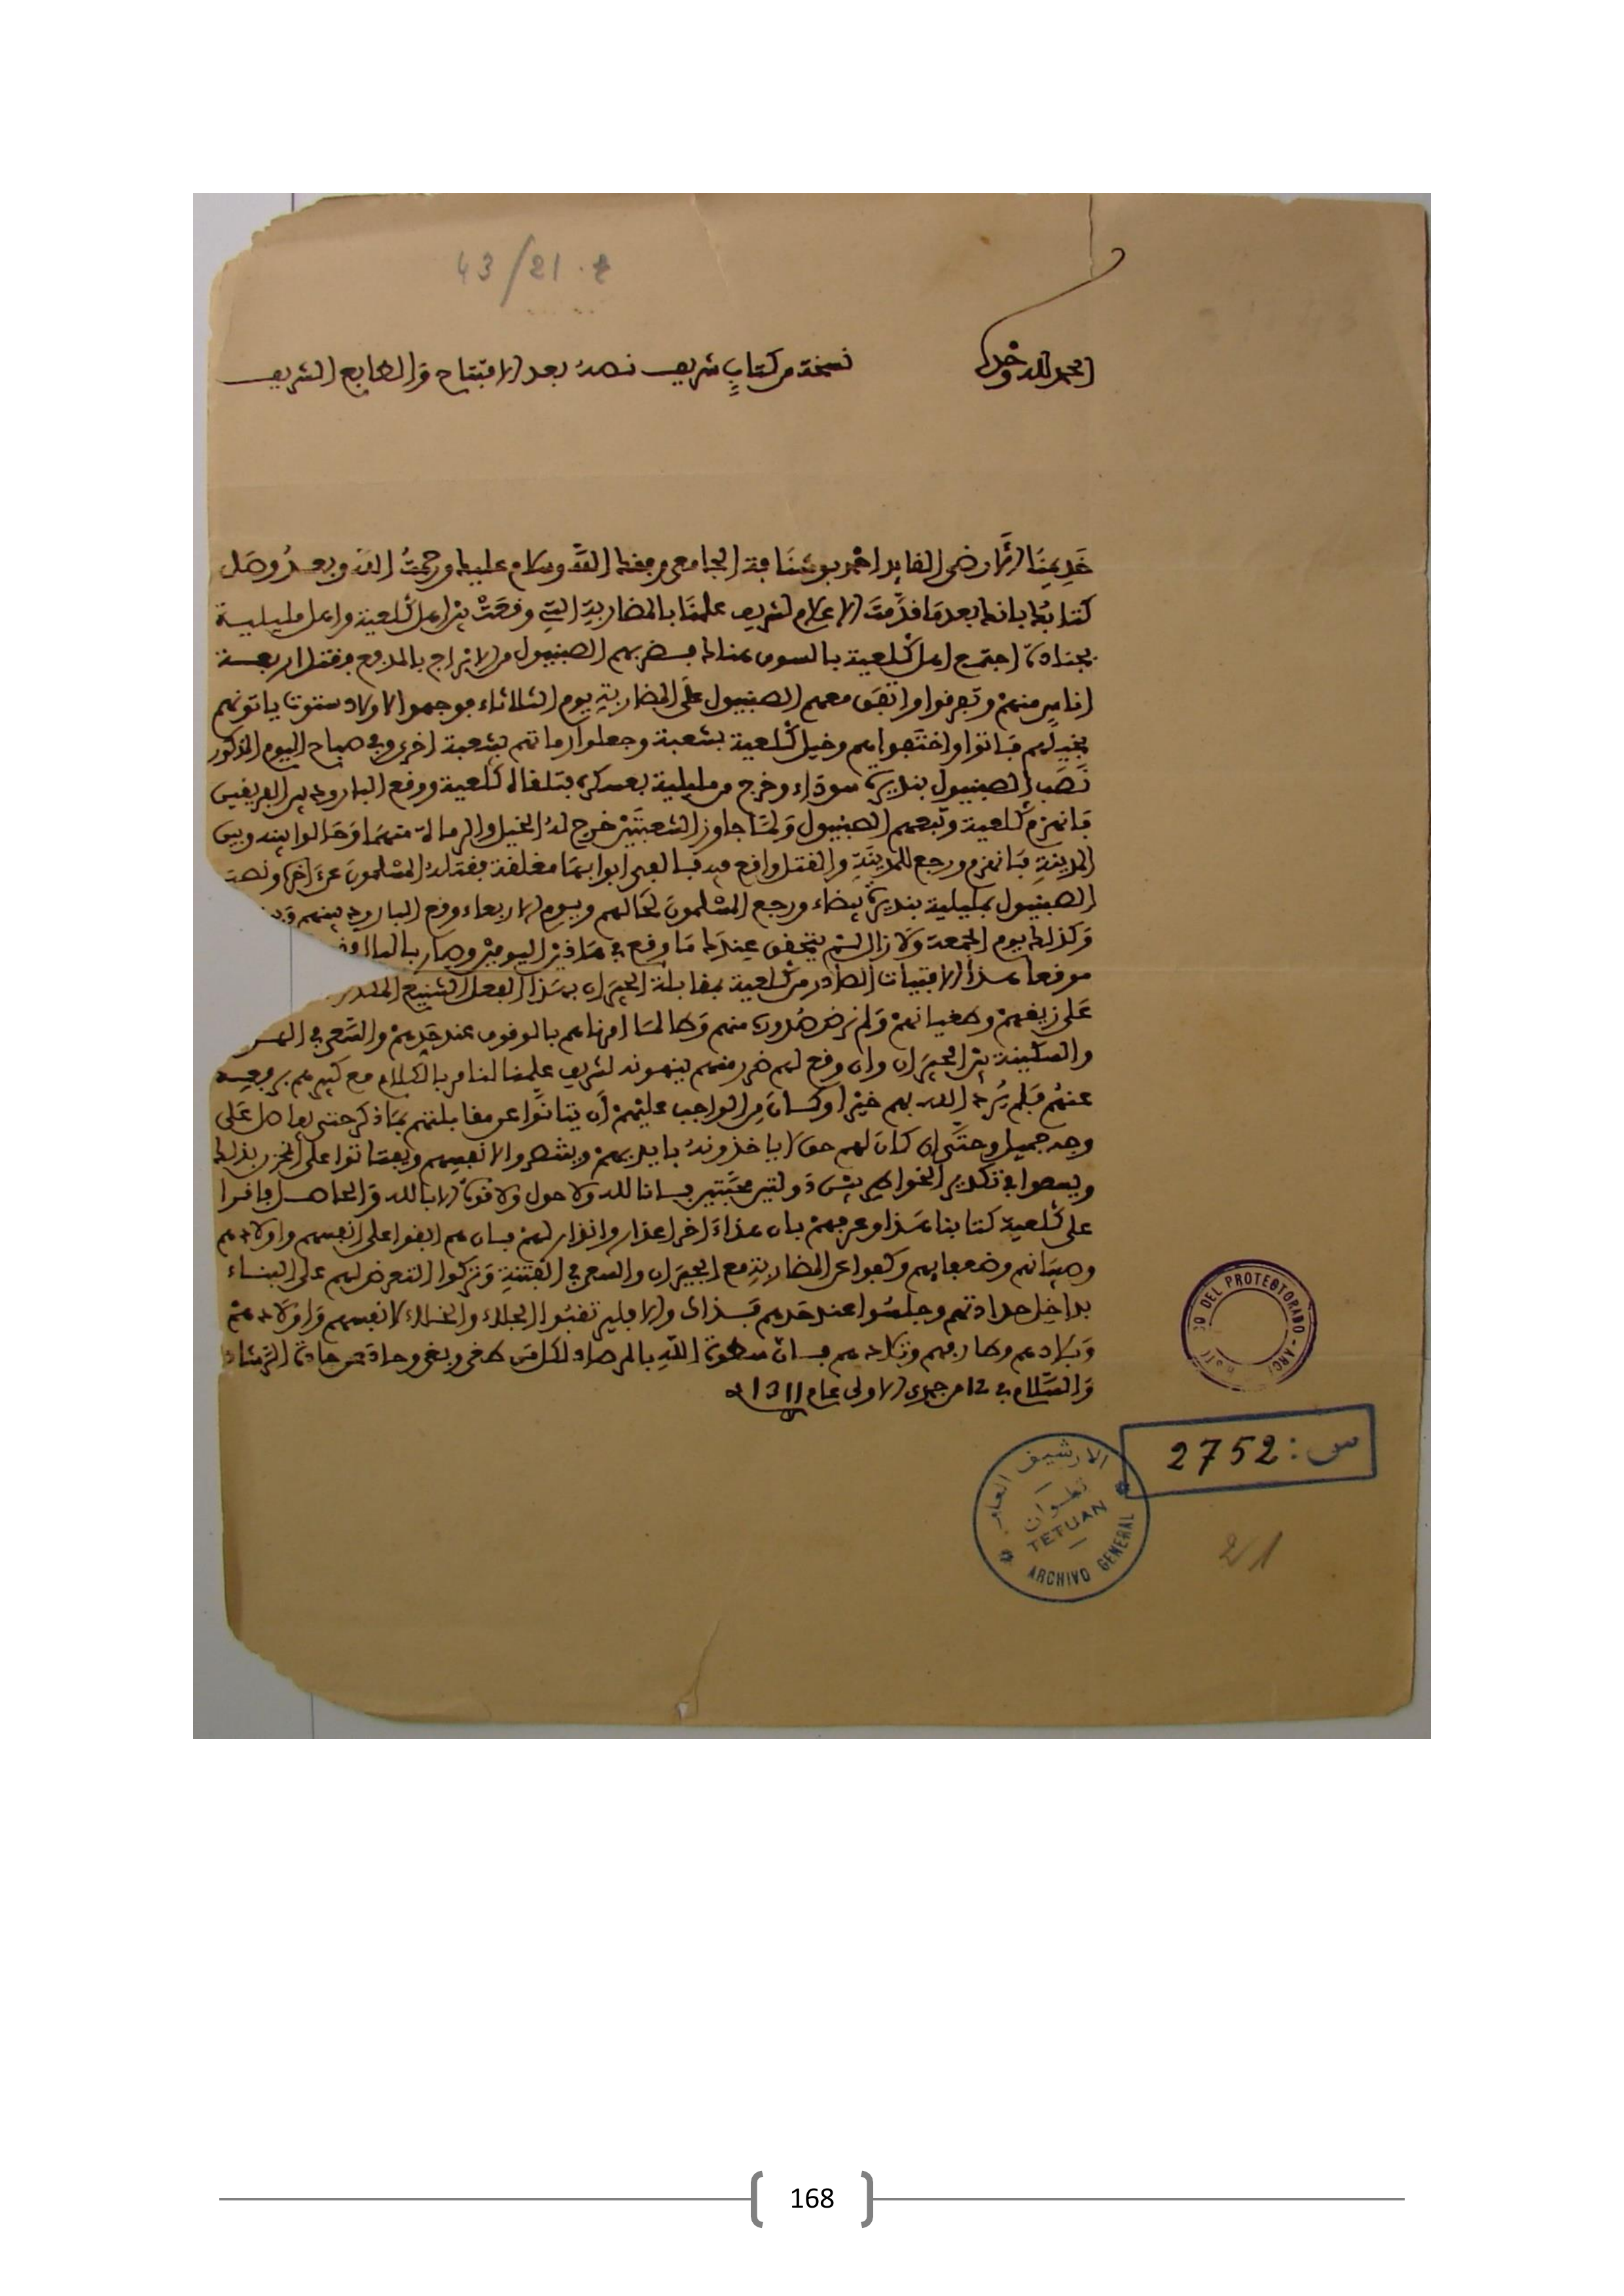 43/21 . ع
الحمد لله وحده
نسخة من كتاب شريف نصه بعد الافتتاح والطابع الشريف
خديمنا الأرضى القايد احمد بوشتا بن الجامعي وفقك الله وسلام عليك ورحمت الله وبعد وصل
كتابك بانك بعد ما قدمت الاعلام لشريف علمنا بالمضاربة التي وقعت بين اهل كلعية واهل مليلية
اجتمع اهل كلعية بالسوق هناك فضربهم الصبنيول من الابراج بالمدفع وقتل اربعة
اناس منهم وتفرقوا واتفق معهم الصبنيول على المضاربة يوم الثلاثاء فوجهوا لاولاد ستوت ياتونهم
بخيلهم فاتوا واختفوا هم وخيل كلعية بشعبة وجعلوا رماتهم بشعبة اخرى وفي صباح اليوم المذكور
نصب الصبنيول بنديرة سوداء وخرج من مليلية بعسكره فتلقاه كلعية ووقع البارود بين الفريقين
فانهزم كلعية وتبعهم الصبنيول ولما جاوز الشعبتين خرج له الخيل والرمالة منهما وحالوا بينه وبين
المدينة فانهزم ورجع للمدينة والقتل واقع فيه فالفى ابوابها مغلقة فقتله المسلمون عن آخره ونصب
الصبنيول بمليلية بنديرة بيضاء ورجع المسلمون لحالهم ويوم الاربعاء وقع البارود بينهم
وكذلك يوم الجمعة ولا زال لم يتحقق عندك ما وقع في هاذين اليومين وصار بالبال
موقعا هذا الافتيات الصادر من كلعية بمقابلة الجيران بهذا الفعل الشنيع
على زيغهم وطغيانهم ولم نرض صدوره منهم وطالما امرناهم بالوقوف عند حدهم والسعي في
والسكينة بين الجيران وان وقع لهم ضرر منهم ينهونه لشريف علمنا لنامر بالكلام مع كبيرهم برفعه
عنهم فلم يرد الله بهم خيرا وكان من الواجب عليهم أن يتانوا عن مقابلتهم بما ذكر حتى يفاصل على
وجه جميل وحتى ان كان لهم حق لا ياخذونه بايديهم وينتصروا لانفسهم ويفتاتوا على المخزن بذلك
ويسعوا في تكدير الخواطر بين دولتين محبتين فانا لله ولا حول ولا قوة الا بالله والحاصل فاقرا
على كلعية كتابنا هذا وعرفهم بان هذا آخر اعذار وانذار لهم فان هم ابقوا على انفسهم واولادهم
وصبيانهم وضعفايهم وكفوا عن المضاربة مع الجيران والسعي في الفتنة وتركوا التعرض لهم على البناء
بداخل حدادتهم وجلسوا عند حدهم فذاك والا
لانفسهم واولادهم
وبلادهم وطارفهم وتلادهم فان سطوة الله بالمرصاد لكل من طغى وبغى وحاد عن جادة الرشاد
والسلام في 12 من جمدى الاولى عام 1311
DEL PROTECTORADO - ARCH
س : 2752
الارشيف العام
تطوان
TETUAN
ARCHIVO GENERAL
2/1
168